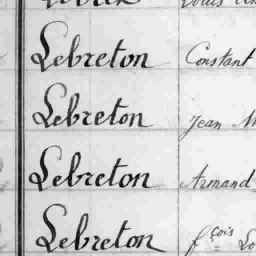 Lebreton Constant
Lebreton Jean M
Lebreton Armand
Lebreton fçois Lo